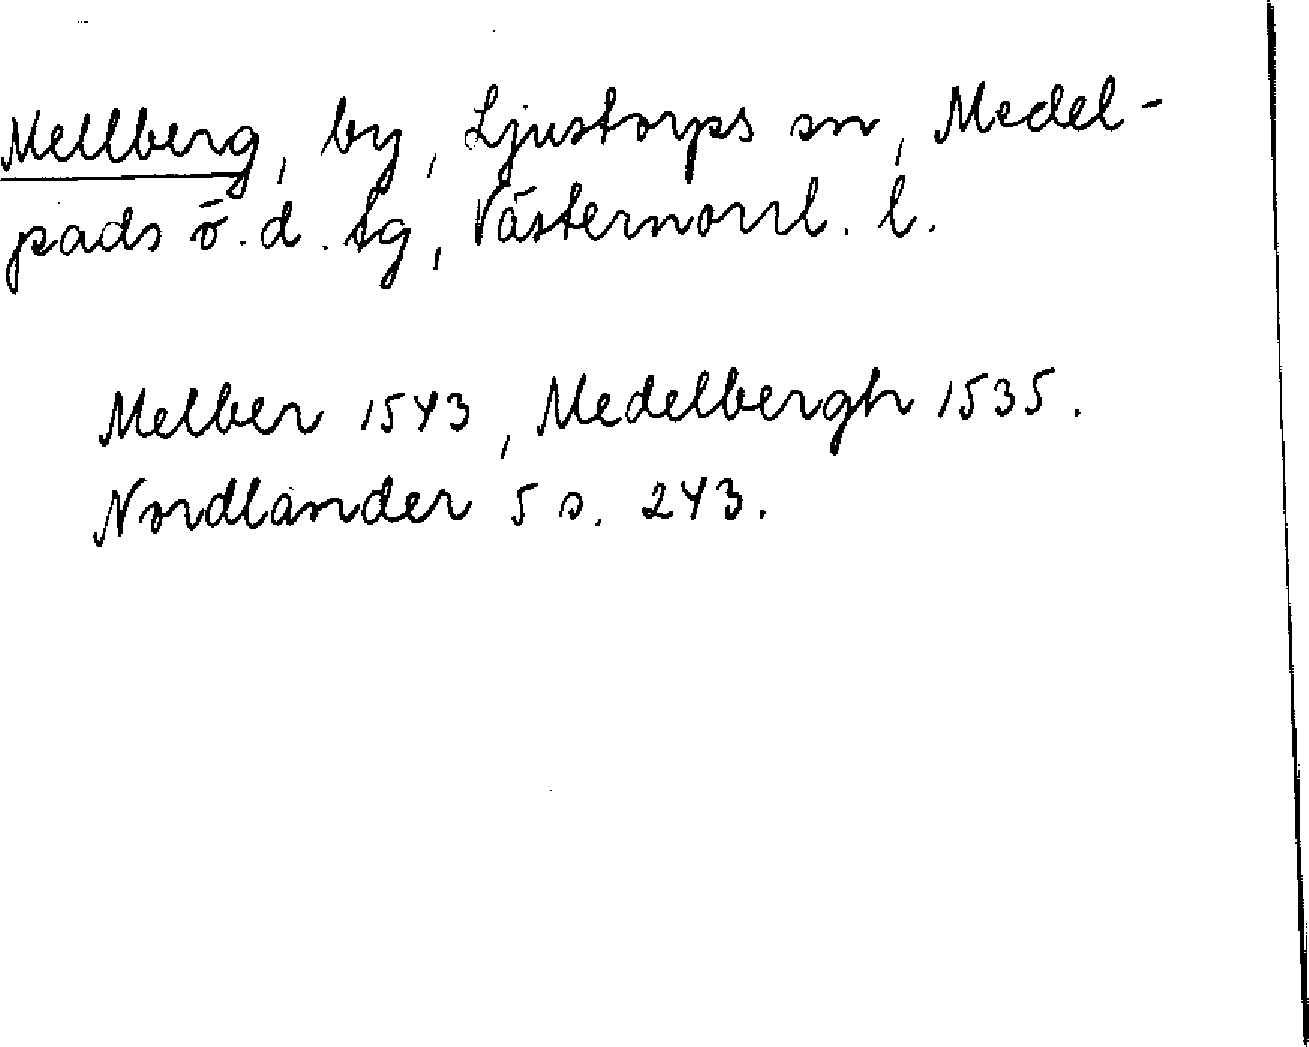 Mellberg, by, Ljustorps sn, Medel-
pads ö.d. tg, Västernorrl. l.
Melber 1543, Medelbergh 1535.
Nordlander 5 s. 243.